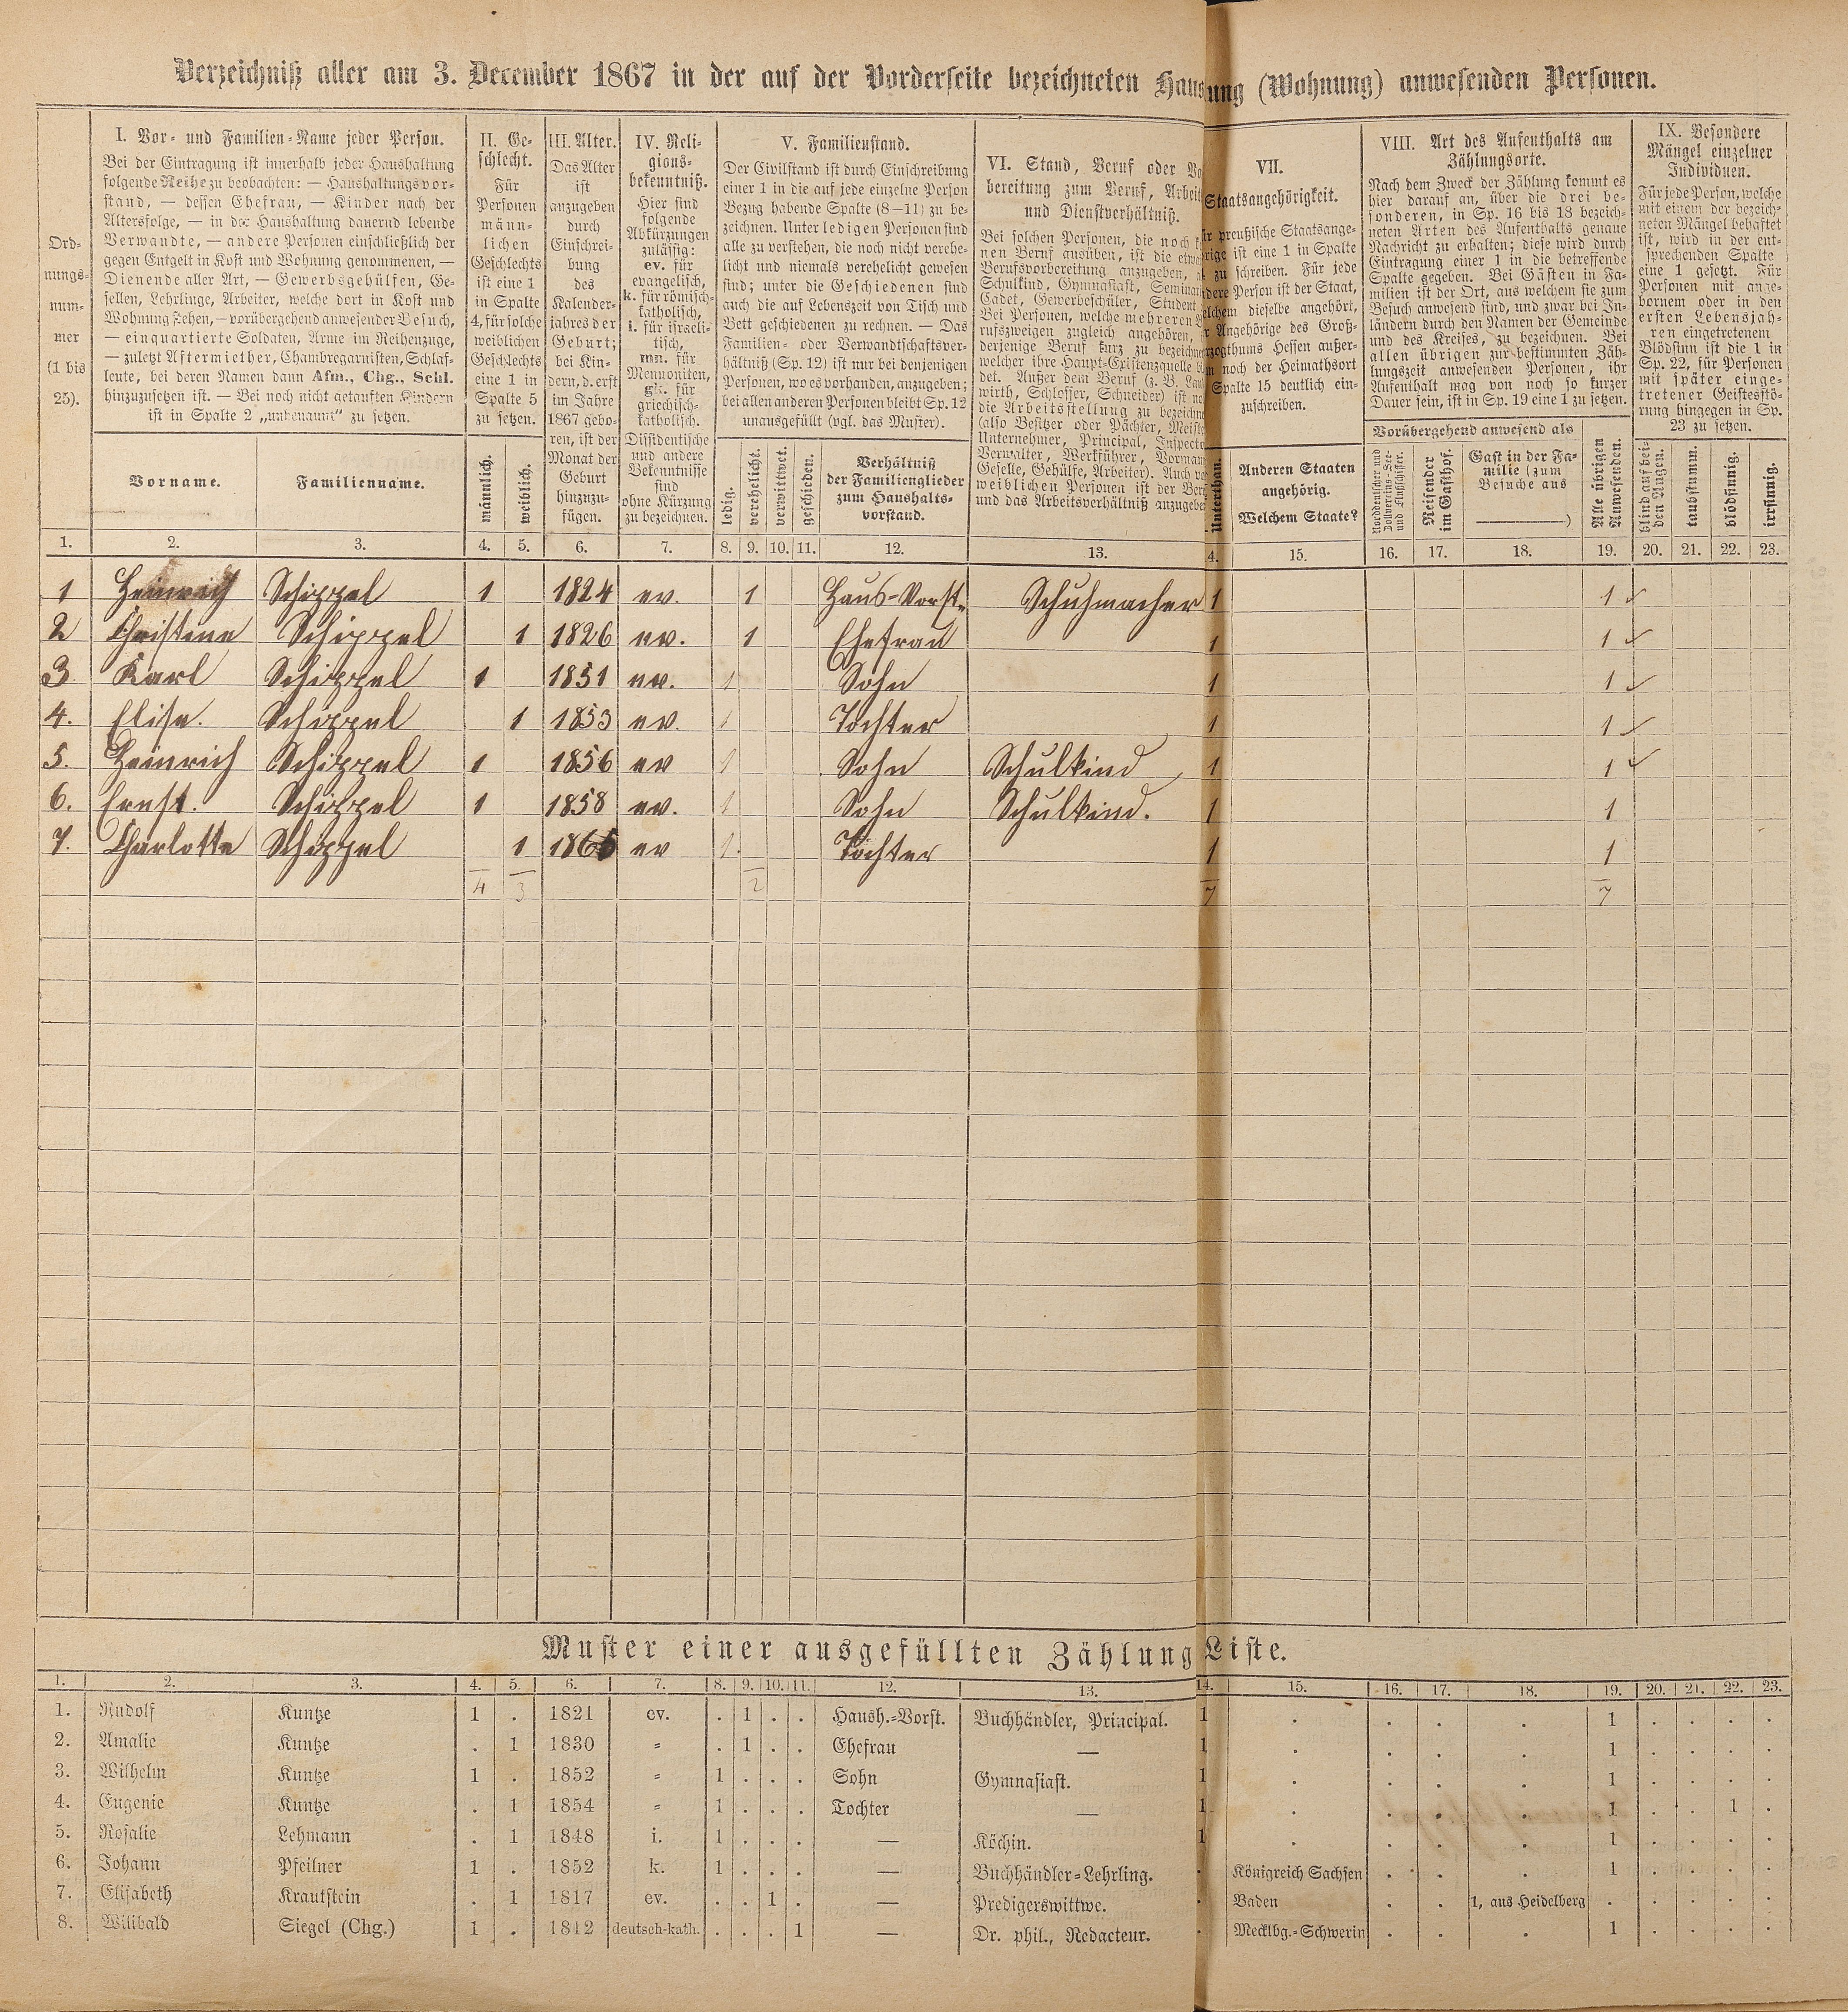 Verzeichniß aller am 3. December 1867 in der auf der Vorderseite bezeichneten Haus ung (Wohnung) anwesenden Personen.
Ord-
nungs-
num-
mer
(1 bis
25).
I. Vor- und Familien-Name jeder Person.
Bei der Eintragung ist innerhalb jeder Haushaltung
folgende Reihe zu beobachten: — Haushaltungsvor-
stand, — dessen Ehefrau, — Kinder nach der
Altersfolge, — in der Haushaltung dauernd lebende
Verwandte, — andere Personen einschließlich der
gegen Entgelt in Kost und Wohnung genommenen, —
Dienende aller Art, — Gewerbsgehülfen, Ge-
sellen, Lehrlinge, Arbeiter, welche dort in Kost und
Wohnung stehen, — vorübergehend anwesender Besuch,
— einquartierte Soldaten, Arme im Reihenzuge,
— zuletzt Aftermiether, Chambregarnisten, Schlaf-
leute, bei deren Namen dann Afm., Chg., Schl.
hinzuzusetzen ist. — Bei noch nicht getauften Kindern
ist in Spalte 2 „unbenannt“ zu setzen.
Vorname.
Familienname.
II. Ge-
schlecht.
Für
Personen
männ-
lichen
Geschlechts
ist eine 1
in Spalte
4, für solche
weiblichen
Geschlechts
eine 1 in
Spalte 5
zu setzen.
männlich.
weiblich.
III. Alter.
Das Alter
ist
anzugeben
durch
Einschrei-
bung
des
Kalender-
jahres der
Geburt;
bei Kin-
dern, d. erst
im Jahre
1867 gebo-
ren, ist der
Monat der
Geburt
hinzuzu-
fügen.
IV. Reli-
gions-
bekenntniß.
Hier sind
folgende
Abkürzungen
zulässig:
ev. für
evangelisch,
k. für römisch-
katholisch,
i. für israeli-
tisch,
mn. für
Mennoniten,
gk. für
griechisch-
katholisch.
Dissidentische
und andere
Bekenntnisse
sind
ohne Kürzung
zu bezeichnen.
V. Familienstand.
Der Civilstand ist durch Einschreibung
einer 1 in die auf jede einzelne Person
Bezug habende Spalte (8—11) zu be-
zeichnen. Unter ledigen Personen sind
alle zu verstehen, die noch nicht verehe-
licht und niemals verehelicht gewesen
sind; unter die Geschiedenen sind
auch die auf Lebenszeit von Tisch und
Bett geschiedenen zu rechnen. — Das
Familien- oder Verwandtschaftsver-
hältniß (Sp. 12) ist nur bei denjenigen
Personen, wo es vorhanden, anzugeben;
bei allen anderen Personen bleibt Sp. 12
unausgefüllt (vgl. das Muster).
ledig.
verehelicht.
verwittwet.
geschieden.
Verhältniß
der Familienglieder
zum Haushalts-
vorstand.
VI. Stand, Beruf oder Vo
bereitung zum Beruf, Arbeit
und Dienstverhältniß.
Bei solchen Personen, die noch k
nen Beruf ausüben, ist die etwa
Berufsvorbereitung anzugeben, a
Schulkind, Gymnasiast, Seminar
Cadet, Gewerbeschüler, Student
Bei Personen, welche mehreren B
rufszweigen zugleich angehören, i
derjenige Beruf kurz zu bezeichne
welcher ihre Haupt-Existenzquelle b
det. Außer dem Beruf (z. B. Lan
wirth, Schlosser, Schneider) ist no
die Arbeitsstellung zu bezeichn
(also Besitzer oder Pächter, Meiste
Unternehmer, Principal, Inspecto
Verwalter, Werkführer, Vorman
Geselle, Gehülfe, Arbeiter). Auch v
weiblichen Personen ist der Ber
und das Arbeitsverhältniß anzugebe
VII.
Staatsangehörigkeit.
ür preußische Staatsange-
rige ist eine 1 in Spalte
zu schreiben. Für jede
dere Person ist der Staat,
lchem dieselbe angehört,
r Angehörige des Groß-
rzogthums Hessen außer-
m noch der Heimathsort
Spalte 15 deutlich ein-
zuschreiben.
Unterthan.
Anderen Staaten
angehörig.
Welchem Staate?
VIII. Art des Aufenthalts am
Zählungsorte.
Nach dem Zweck der Zählung kommt es
hier darauf an, über die drei be-
sonderen, in Sp. 16 bis 18 bezeich-
neten Arten des Aufenthalts genaue
Nachricht zu erhalten; diese wird durch
Eintragung einer 1 in die betreffende
Spalte gegeben. Bei Gästen in Fa-
milien ist der Ort, aus welchem sie zum
Besuch anwesend sind, und zwar bei In-
ländern durch den Namen der Gemeinde
und des Kreises, zu bezeichnen. Bei
allen übrigen zur bestimmten Zäh-
lungszeit anwesenden Personen, ihr
Aufenthalt mag von noch so kurzer
Dauer sein, ist in Sp. 19 eine 1 zu setzen.
Vorübergehend anwesend als
Norddeutscher und
Zollvereins-See-
und Flußschiffer.
Reisender
im Gasthof.
Gast in der Fa-
milie (zum
Besuche aus
)
Alle übrigen
Anwesenden.
IX. Besondere
Mängel einzelner
Individuen.
Für jede Person, welche
mit einem der bezeich-
neten Mängel behaftet
ist, wird in der ent-
sprechenden Spalte
eine 1 gesetzt. Für
Personen mit ange-
bornem oder in den
ersten Lebensjah-
ren eingetretenem
Blödsinn ist die 1 in
Sp. 22, für Personen
mit später einge-
tretener Geistesstö-
rung hingegen in Sp.
23 zu setzen.
blind auf bei-
den Augen.
taubstumm.
blödsinnig.
irrsinnig.
1. 2. 3. 4. 5. 6. 7. 8. 9. 10. 11. 12. 13. 4. 15. 16. 17. 18. 19. 20. 21. 22. 23.
1 Heinrich Schippel 1 1824 ev. 1 Haus-Vorst. Schuhmacher 1 1
2 Christine Schippel 1 1826 ev. 1 Ehefrau 1 1
3 Karl Schippel 1 1851 ev. 1 Sohn 1 1
4. Elise. Schippel 1 1853 ev. 1 Tochter 1 1
5. Heinrich Schippel 1 1856 ev 1 Sohn Schulkind 1 1
6. Ernst. Schippel 1 1858 ev. 1 Sohn Schulkind. 1 1
7. Charlotte Schippel 1 ev 1 Tochter 1 1
4 3 2 7 7
Muster einer ausgefüllten Zählung Liste.
1. 2. 3. 4. 5. 6. 7. 8. 9. 10. 11. 12. 13. 14. 15. 16. 17. 18. 19. 20. 21. 22. 23.
1. Rudolf Kuntze 1 . 1821 ev. . 1 . . Haush.-Vorst. Buchhändler, Principal. 1 . . . . 1 . . . .
2. Amalie Kuntze . 1 1830 = . 1 . . Ehefrau — 1 . . . . 1 . . . .
3. Wilhelm Kuntze 1 . 1852 = 1 . . . Sohn Gymnasiast. 1 . . . . 1 . . . .
4. Eugenie Kuntze . 1 1854 = 1 . . . Tochter — 1 . . . . 1 . . 1 .
5. Rosalie Lehmann . 1 1848 i. 1 . . . — Köchin. 1 . . . . 1 . . . .
6. Johann Pfeilner 1 . 1852 k. 1 . . . — Buchhändler-Lehrling. . Königreich Sachsen . . . 1 . . . .
7. Elisabeth Krautstein . 1 1817 ev. . . 1 . — Predigerswittwe. . Baden . . 1, aus Heidelberg . . . . .
8. Wilibald Siegel (Chg.) 1 . 1842 deutsch-kath. . . . 1 — Dr. phil., Redacteur. . Mecklbg.-Schwerin . . . 1 . . . .